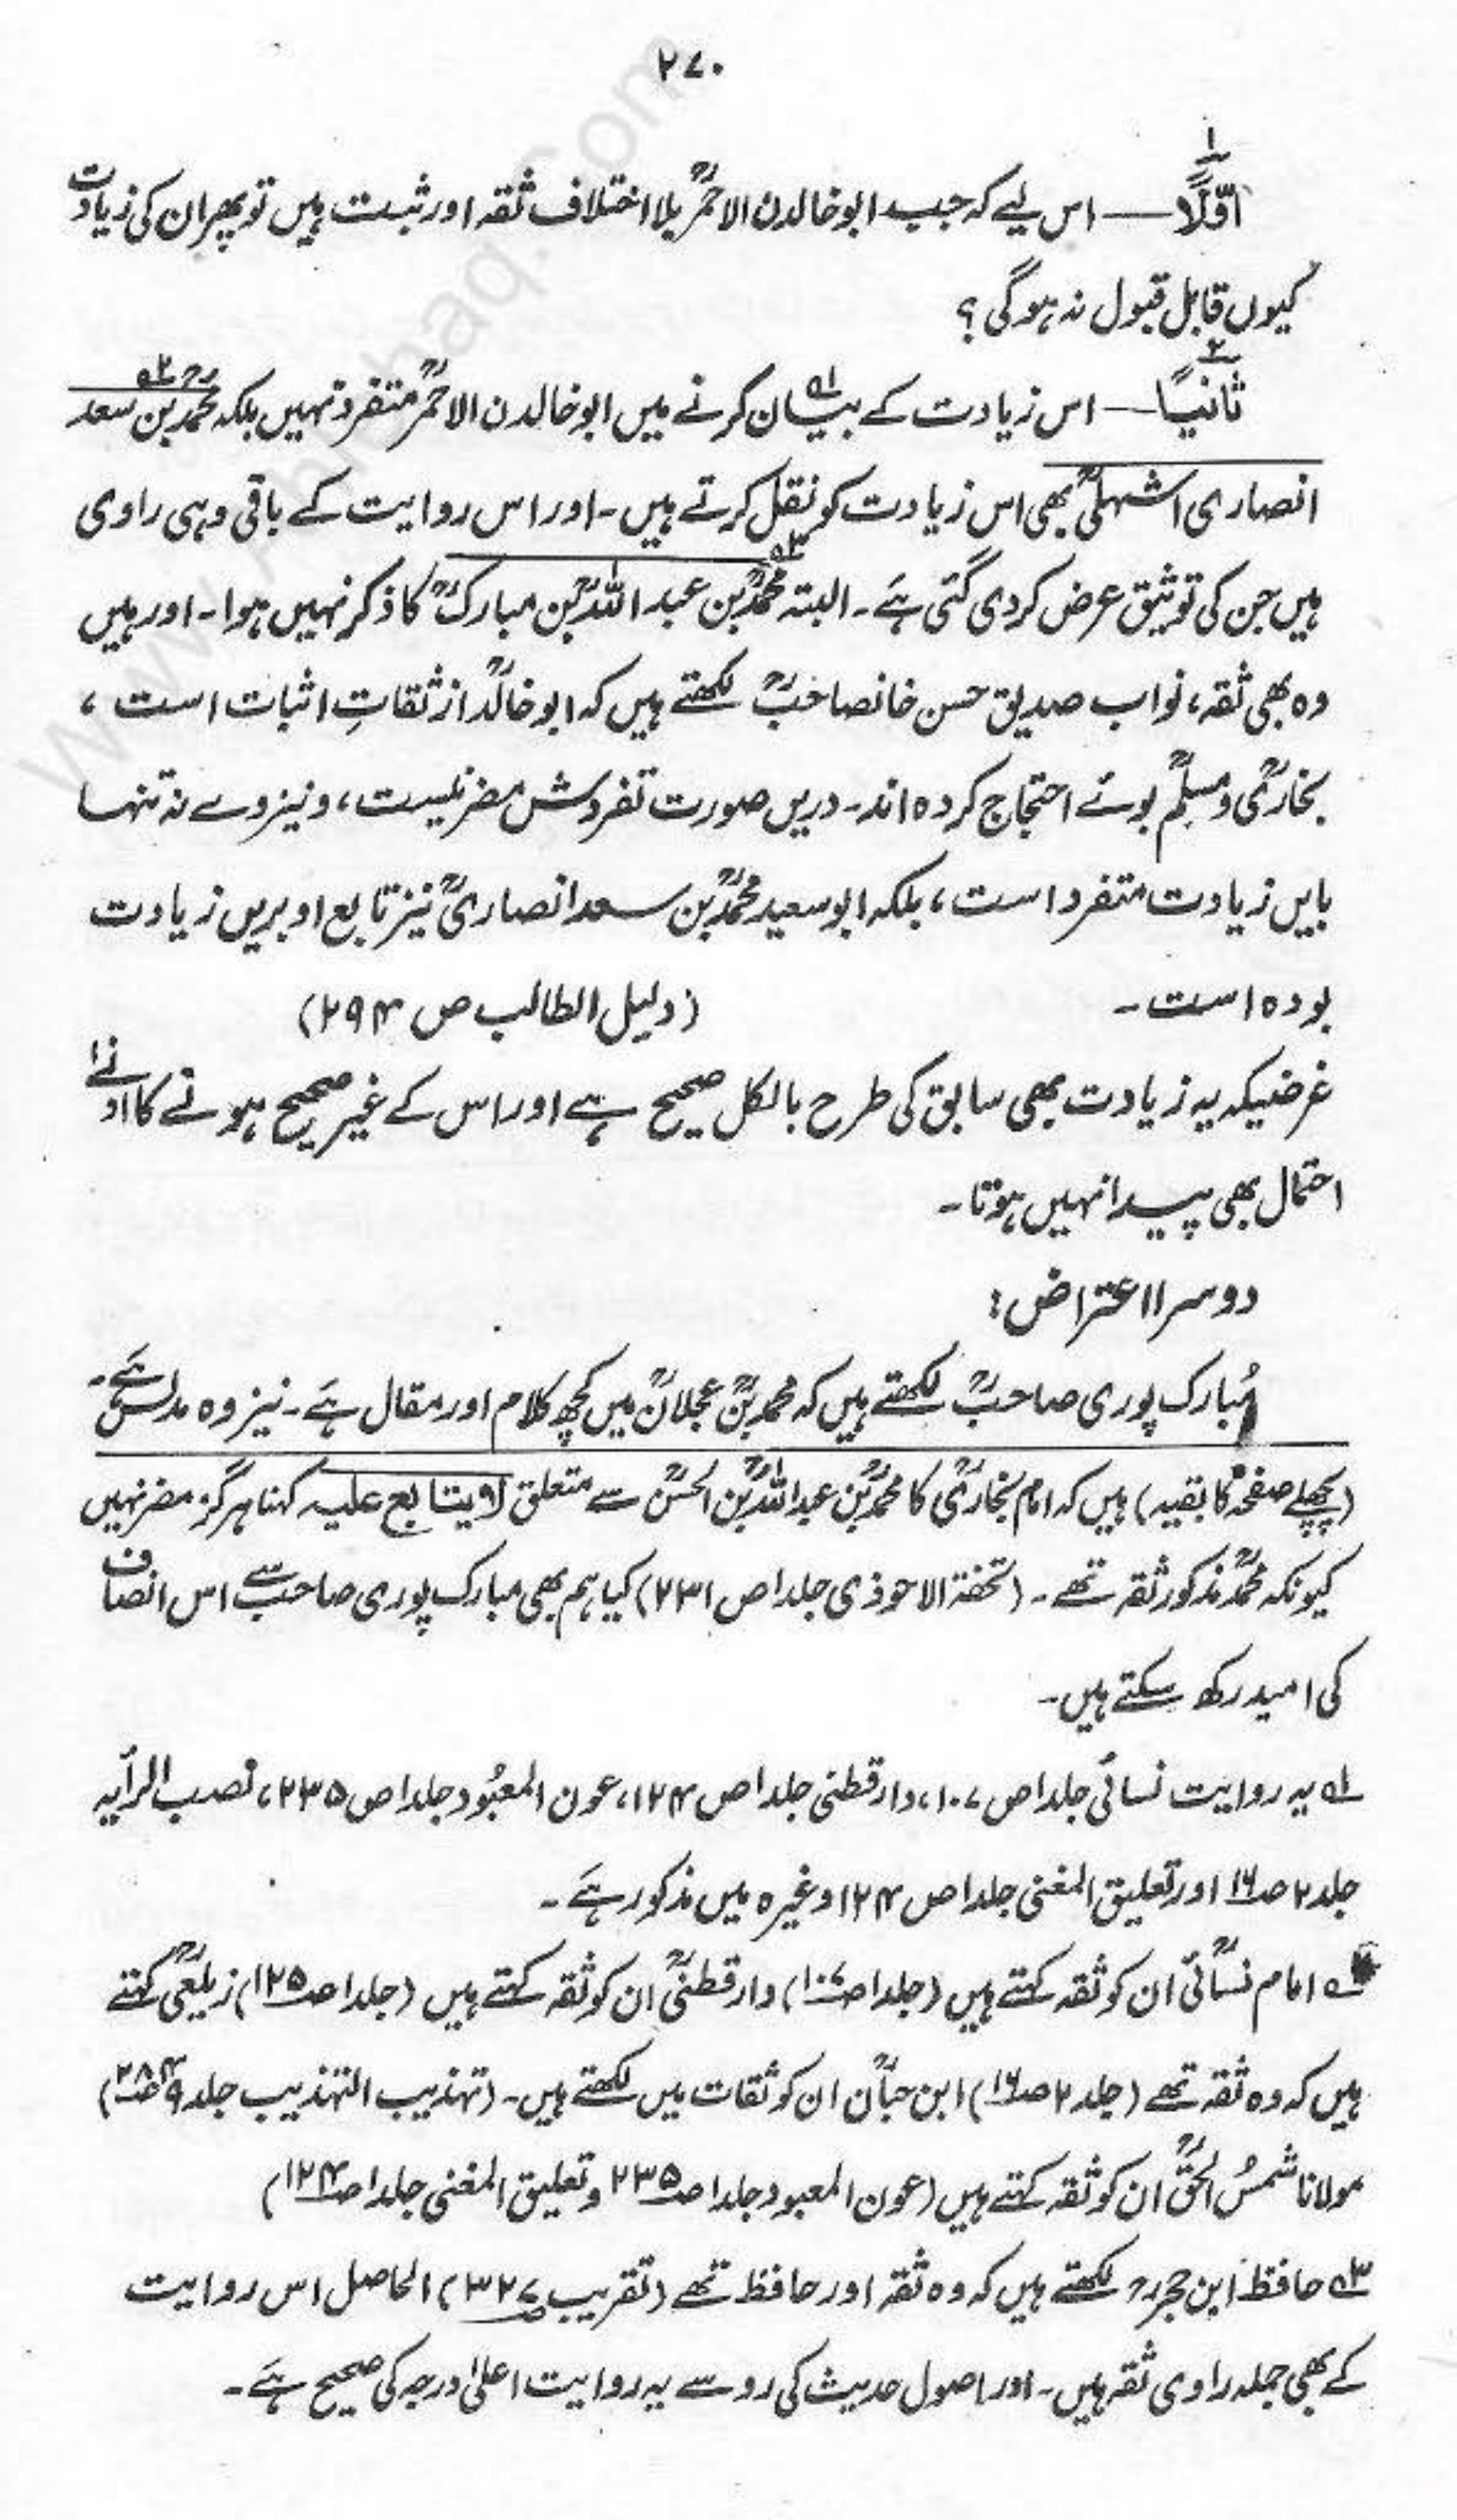 ۲۷۰
اوّلاً۱ــــ اس لیے کہ جب ابوخالدن الاحمرؒ بلا اختلاف ثقہ اور ثبت ہیں تو پھر ان کی زیادت
کیوں قابل قبول نہ ہوگی؟
ثانیاً۲ــــ اس زیادت کے بیان۱ کرنے میں ابوخالدن الاحمرؒ متفرد نہیں بلکہ محمد بن سعد۲
انصاری اشہلیؒ بھی اس زیادت کو نقل کرتے ہیں۔ اور اس روایت کے باقی وہی راوی
ہیں جن کی توثیق عرض کردی گئی ہے۔ البتہ محمدؒ۳ بن عبد اللہؒ بن مبارکؒ کا ذکر نہیں ہوا۔ اور ہیں
وہ بھی ثقہ، نواب صدیق حسن خانصاحبؒ لکھتے ہیں کہ ابوخالدؒ از ثقاتِ اثبات است،
بخاریؒ و مسلمؒ بوئے احتجاج کردہ اند۔ دریں صورت تفردش مضر نیست، و نیز وے نہ تنہا
بایں زیادت متفرد است، بلکہ ابوسعید محمدؒ بن سعد انصاریؒ نیز تابع او بریں زیادت
بودہ است۔ (دلیل الطالب ص ۲۹۴)
غرضیکہ یہ زیادت بھی سابق کی طرح بالکل صحیح ہے اور اس کے غیر صحیح ہونے کا ادنےٰ
احتمال بھی پیدا نہیں ہوتا۔
دوسرا اعتراض:
مُبارک پوری صاحبؒ لکھتے ہیں کہ محمد بنؒ عجلانؒ میں کچھ کلام اور مقال ہے۔ نیز وہ مدلس ہے۔
(پچھلے صفحہ کا بقیہ) ہیں کہ امام بخاریؒ کا محمدؒ بن عبداللہؒ بن الحسنؒ سے متعلق لا یتابع علیہ کہنا ہرگز مضر نہیں
کیونکہ محمدؒ مذکور ثقہ تھے۔ (تحفۃ الاحوذی جلد۱ ص ۲۳۱) کیا ہم بھی مبارک پوری صاحبؒ سے اس انصاف
کی امید رکھ سکتے ہیں۔
۱ یہ روایت نسائی جلد۱ ص ۱۰۷، دارقطنی جلد۱ ص ۱۲۴، عون المعبُود جلد۱ ص ۲۳۵، نصب الرأیہ
جلد۲ ص۱۶ اور تعلیق المغنی جلد۱ ص ۱۲۴ وغیرہ میں مذکور ہے۔
امام نسائیؒ ان کو ثقہ کہتے ہیں (جلد۱ ص۱۰۷) دارقطنیؒ ان کو ثقہ کہتے ہیں (جلد۱ ص۱۲۵) زیلعیؒ کہتے
ہیں کہ وہ ثقہ تھے (جلد۲ ص۱۶) ابن حبانؒ ان کو ثقات میں لکھتے ہیں۔ (تہذیب التہذیب جلد۹ ص۲۸۴)
مولانا شمسُ الحقؒ ان کو ثقہ کہتے ہیں (عون المعبود جلد۱ ص۲۳۵ و تعلیق المغنی جلد۱ ص۱۲۴)
۳ حافظ ابن حجرؒ لکھتے ہیں کہ وہ ثقہ اور حافظ تھے (تقریب ص۳۲۷) الحاصل اس روایت
کے بھی جملہ راوی ثقہ ہیں۔ اور اصول حدیث کی رو سے یہ روایت اعلیٰ درجہ کی صحیح ہے۔